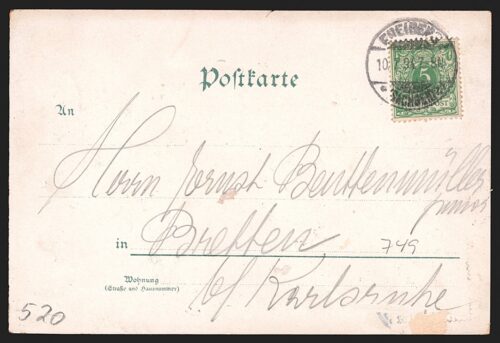 Postkarte
An
Herrn Ernst Beuttenmüller
junior
in Bretten
749
Wohnung
(Straße und Hausnummer)
b/ Karlsruhe
520
5